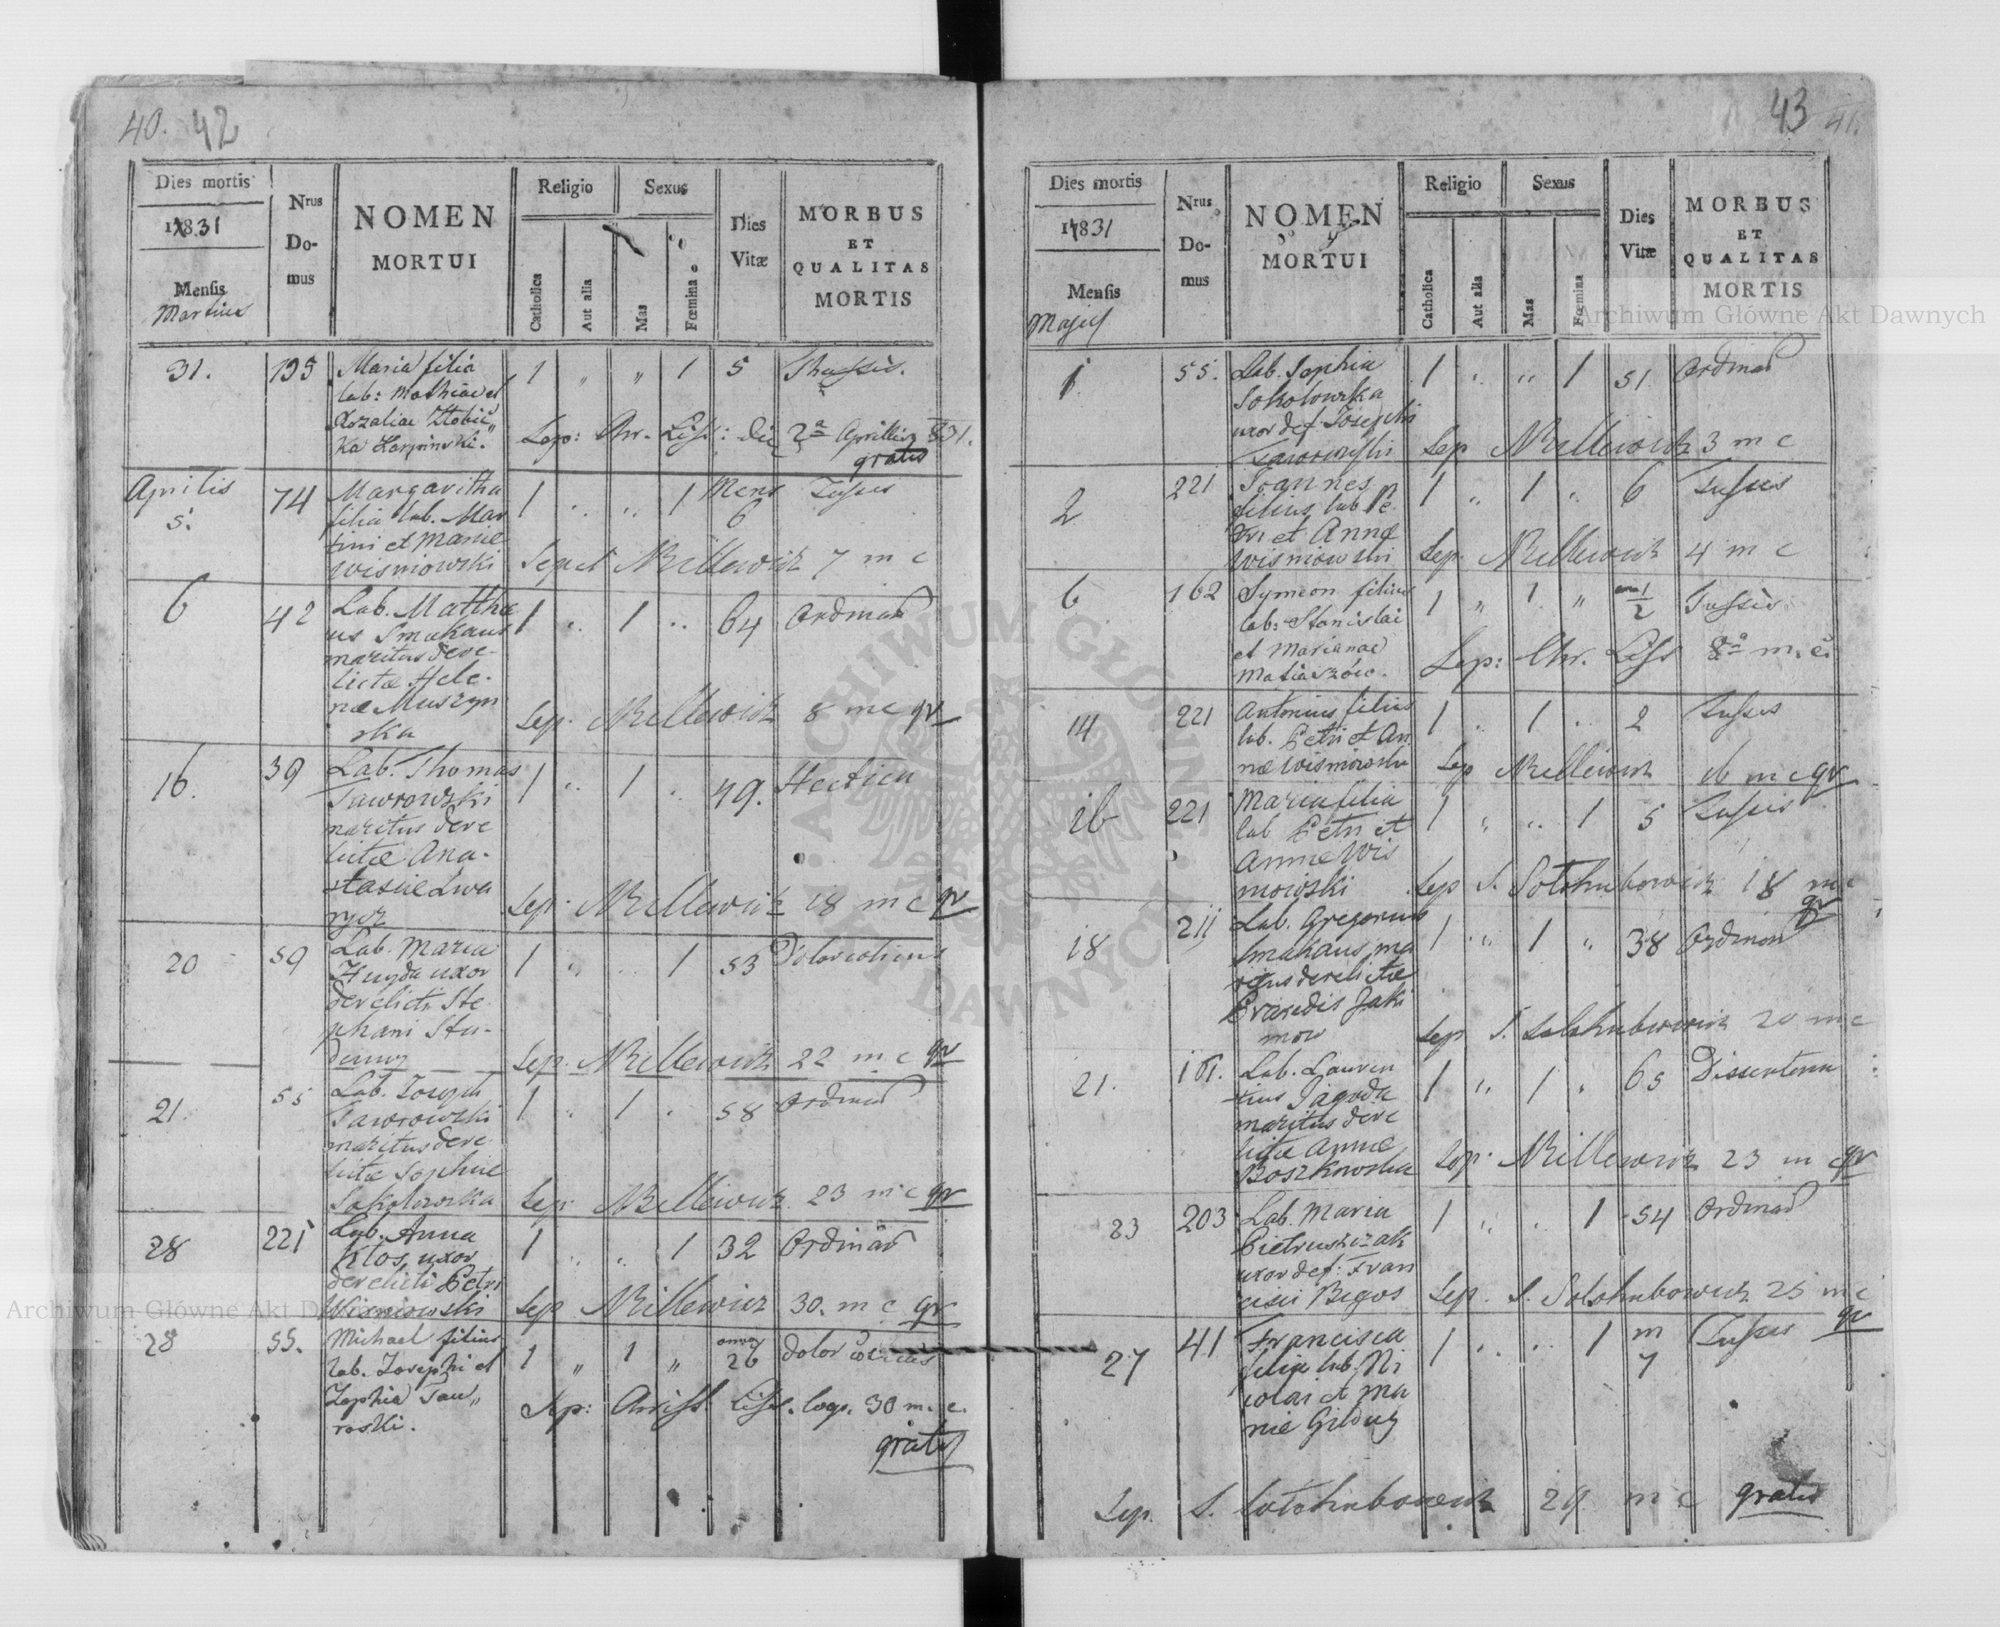 40. 42
Dies mortis
1831
Mensis
Martius
Nrus
Do-
mus
NOMEN
MORTUI
Religio
Catholica
Aut alia
Sexus
Mas
Fœmina
Dies
Vitæ
MORBUS
ET
QUALITAS
MORTIS
31. 195 Maria filia 1 " " 1 5
lab: Mathiae et
Rozaliae
Karpinski.
die 2a Aprillis 831.
gratis
Aprilis
5. 74 Margaritha 1 " " 1 Mens 6 Tussis
filia lab. Mar
tini et Mariæ
Wisniowski Sepel Millewicz 7 m c
6 42 Lab. Matthæ 1 " 1 " 64 Ordinar
us Smakaus
maritus dere-
lictæ Hele-
næ Muszyn
ska Sep. Millewicz 8 m c gr
16. 39 Lab. Thomas 1 " 1 " 49. Hectica
Jaworowski
maritus dere
lictæ Ana-
stasiæ Lwa
rycz Sep. Millewicz 18 m c gr
20 59 Lab. Maria 1 " " 1 53
uxor
derelicti Ste-
phani Stu-
denny Sep. Millewicz 22 m c gr
21. 55 Lab. Joseph 1 " 1 " 58 Ordinar
Jaworowski
maritus dere
lictæ Sophiæ
Sokolowska Sep. Millewicz 23 m c gr
28 221 Lab. Anna 1 " " 1 32 Ordinar
Klos, uxor
derelicti Petri
Wisniowski Sep Millewicz 30. m c gr
28 55. Michael filius 1 " 1 " annor 26 dolor
lab. Josephi et
Zophia Jau"
roski. Sep: Christ. Liss. 30 m. c.
gratis
43 41.
Dies mortis
1831
Mensis
Majus
Nrus
Do-
mus
NOMEN
MORTUI
Religio
Catholica
Aut alia
Sexus
Mas
Fœmina
Dies
Vitæ
MORBUS
ET
QUALITAS
MORTIS
1. 55. Lab. Sophia 1 " " 1 51 Ordinar
Sokolowska
uxor def. Josephi
Jaworowski Sep Millewicz 3 m c
2 221 Joannes 1 " 1 " 6 Tussis
filius lab Pe
tri et Annæ
Wisniowski Sep. Millewicz 4 m c
6 162 Symeon filius 1 " 1 " 1/2 Tussis
lab: Stanislai
et Marianae
Matiaszów. Sep: Chr. Liss 8a m. c.
14 221 Antonius filius 1 " 1 " 2 Tussis
lab. Petri et An
næ Wisniowski Sep Millewicz 16 m c gr
16 221 Maria filia 1 " " 1 5 Tussis
lab Petri et
Annæ Wis
niowski Sep S. Solohubowicz 18 m c
gr
18 211 Lab. Gregorius 1 " 1 " 38 Ordinar
Smakaus ma
ritus derelictæ
Praxedis Jaki
mow Sep S. Solohubowicz 20 m c
21. 161. Lab. Lauren 1 " 1 " 65 Dissenteria
tius Jagoda
maritus dere
lictæ Annæ
Boszkowska Sep. Millewicz 23 m c gr
23 203 Lab. Maria 1 " " 1 54 Ordinar
Pietruszczak
uxor def: Fran
cisci Bigos Sep. S. Solohubowicz 25 m c
gr
27 41 Francisca 1 " " 1 m 7 Tussis
filia lab. Ni
colai et Ma
riæ
Sep. S. Solohubowicz 29 m c gratis
Archiwum Główne Akt Dawnych
Archiwum Główne Akt Dawnych
ARCHIWUM GŁÓWNE AKT DAWNYCH